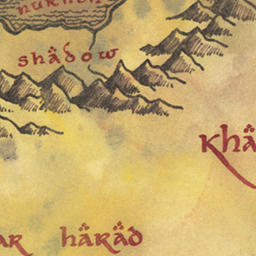 nurnen
shadow
khā
ar harad